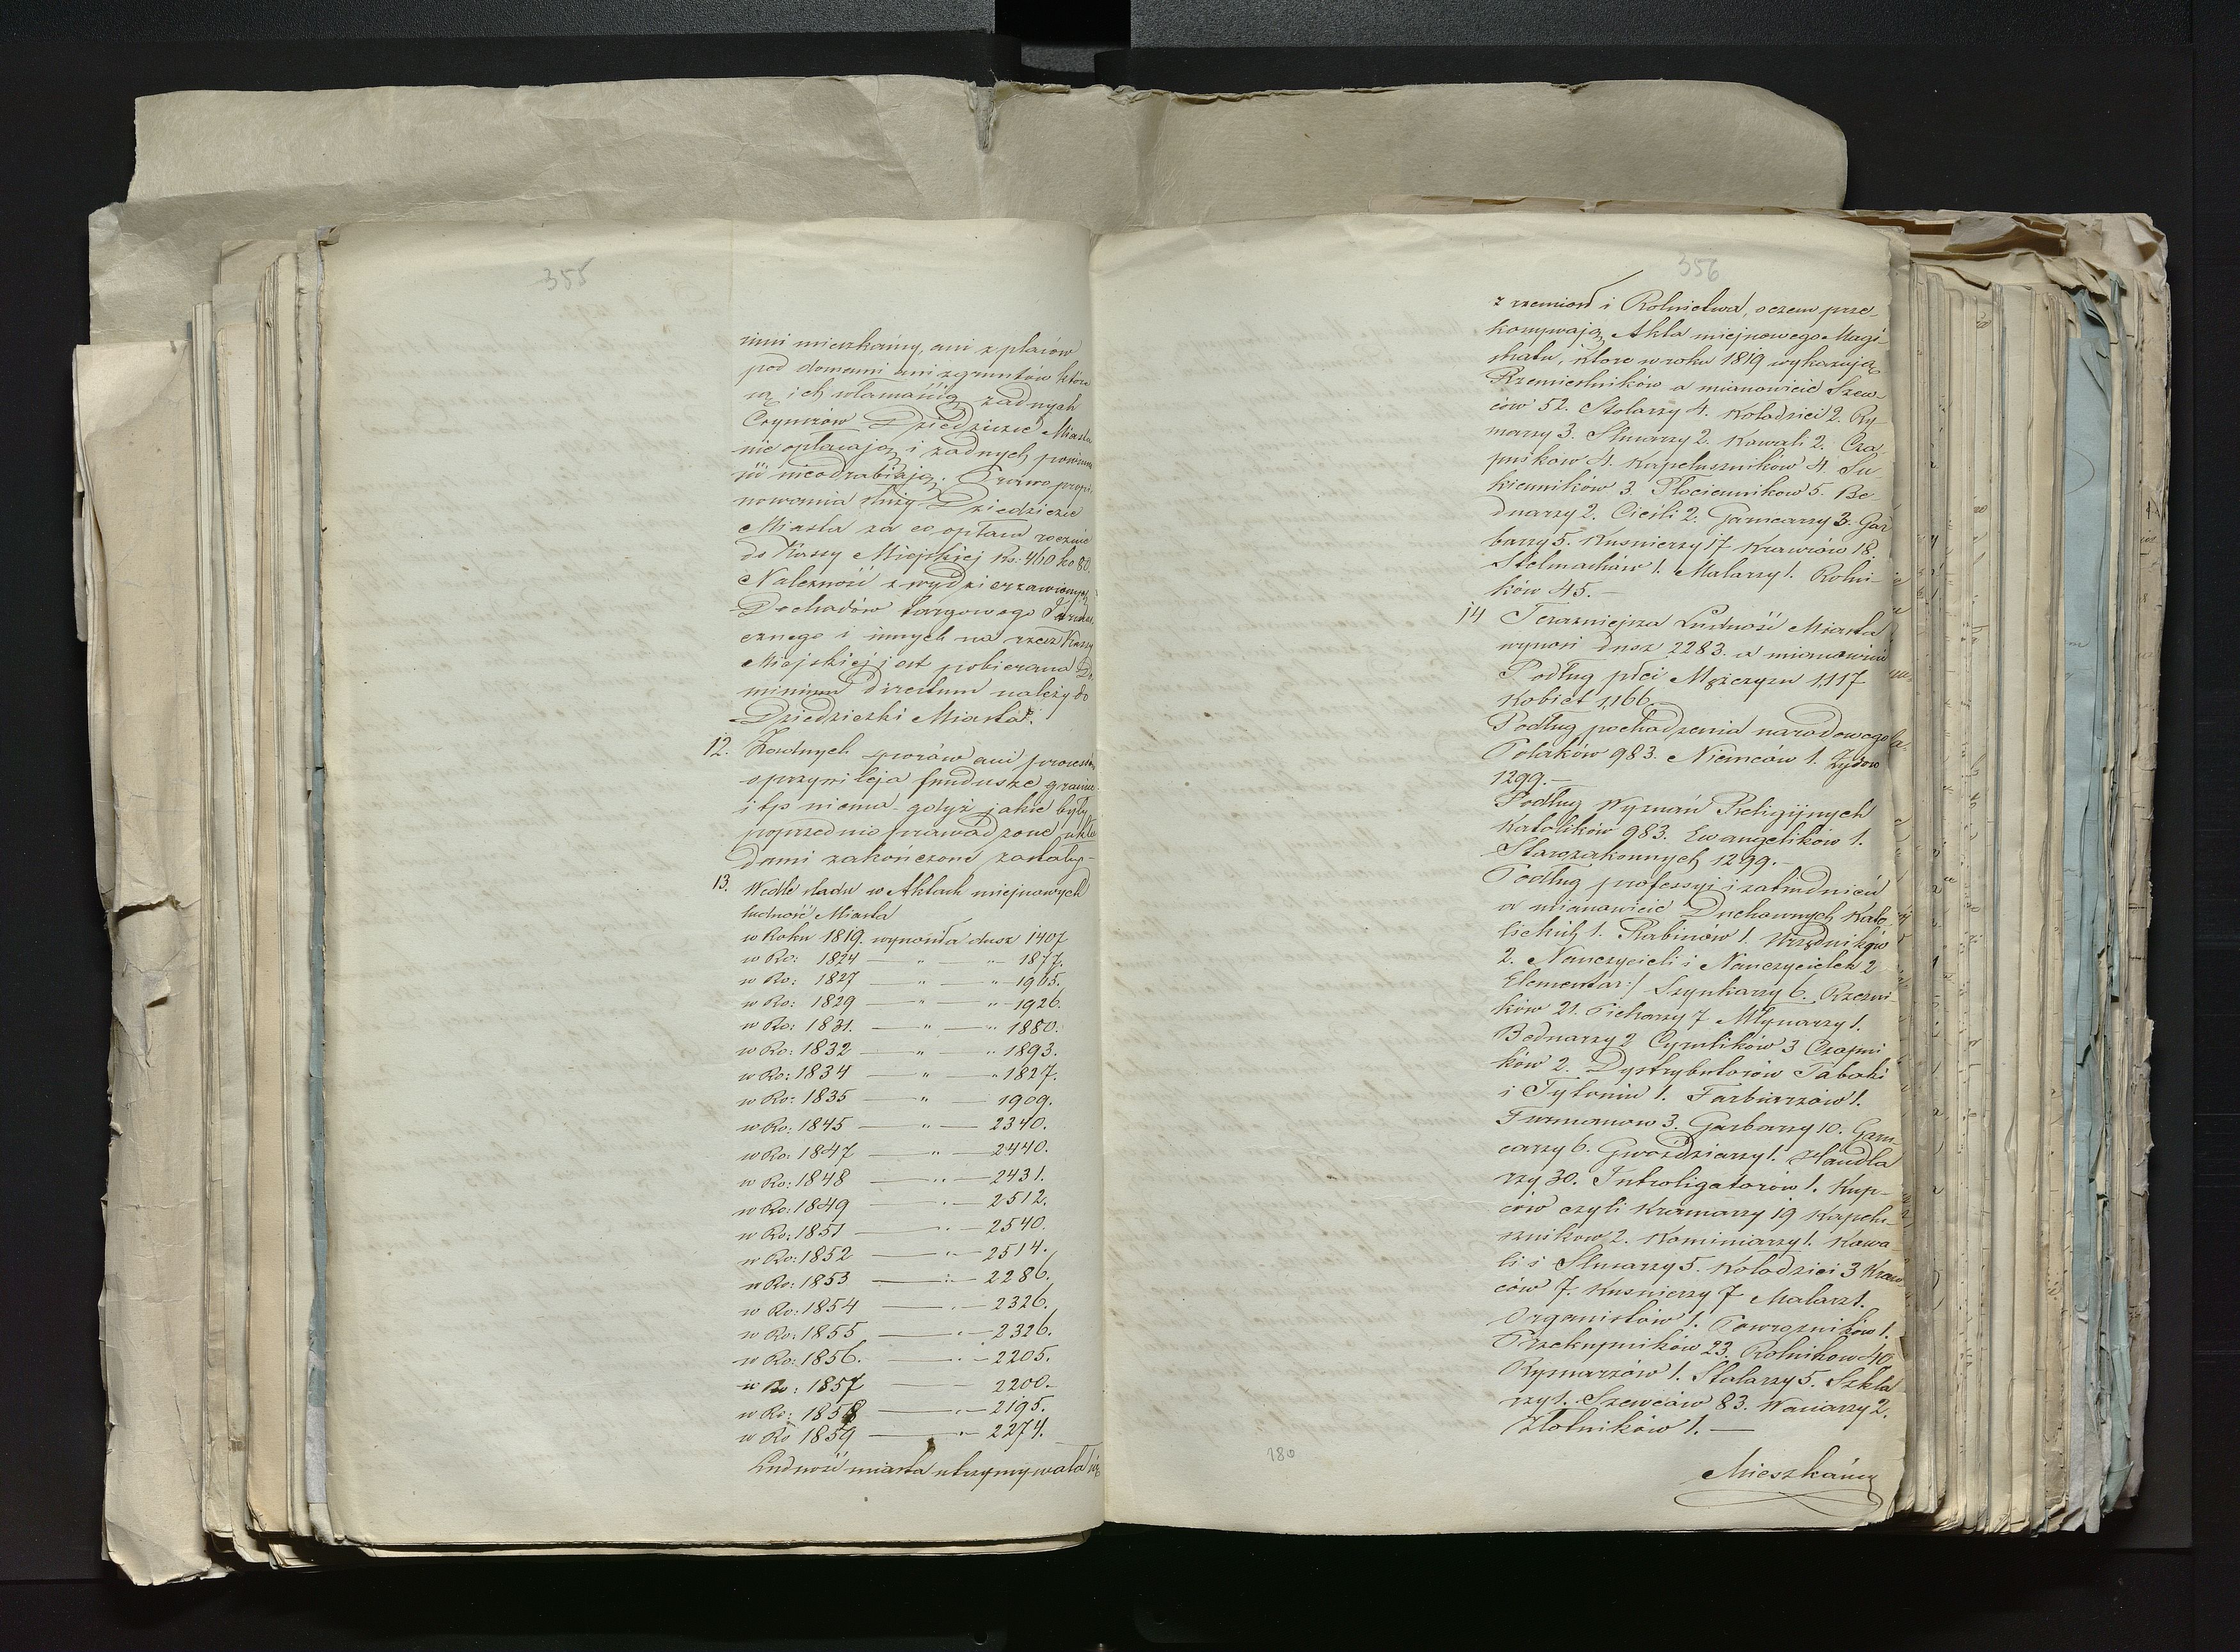 355
inni mieszkańcy, ani z placów
pod domami ani z gruntów które
są ich własnością żadnych
Czynszów Dziedzicowi Miasta
nie opłacają i żadnych powinno
ści nieodrabiają. Prawo propi-
nowania służy Dziedzicowi
Miasta za co opłaca rocznie
do Kassy Miejskiej Rs: 460 ko 80.
Należność z wydzierżawionych
Dochodów targowego Jarma-
cznego i innych na rzecz Kassy
Miejskiej jest pobierana Do-
minium directum należy do
Dziedziczki Miasta.
12. Żadnych sporów ani processów
o przywileja fundusze granice
i tp niema gdyż jakie były
poprzednio prowadzone ukła
dami zakończone zostały-
13. Wedle śladu w Aktach miejscowych
ludność Miasta
w Roku 1819. wynosiła dusz 1407
w Ro: 1824 — " — " — 1877.
w Ro: 1827 — " — " — 1965.
w Ro: 1829 — " — " — 1926.
w Ro: 1831. — " — " 1880.
w Ro: 1832 — " — " 1893.
w Ro: 1834 — " — " 1827.
w Ro: 1835 — " — 1909.
w Ro: 1845 — " — 2340.
w Ro: 1847 — " — 2440.
w Ro: 1848 — " — 2431.
w Ro: 1849 — " — 2512.
w Ro: 1851 — " 2540.
w Ro: 1852 — " — 2514.
w Ro: 1853 — " — 2286.
w Ro: 1854 — " — 2326.
w Ro: 1855 — " — 2326.
w Ro: 1856. — " — 2205.
w Ro: 1857 — 2200.
w Ro: 1858 — " — 2195.
w Ro 1859 — " — 2274.
Ludność miasta utrzymywała się
356
z rzemiosł i Rolnictwa, o czem prze-
konywają Akta miejscowego Magi
stratu, które w roku 1819 wykazują
Rzemieślników a mianowicie Szew-
ców 52. Stolarzy 4. Kołodziei 2. Ry-
marzy 3. Slusarzy 2. Kowali 2. Cza-
pników 4. Kapeluszników 4. Su-
kienników 3. Płócienników 5. Be-
dnarzy 2. Cieśli 2. Garncarzy 3. Gar
barzy 5. Kusnierzy 17 Krawców 18.
Stelmachów 1. Malarzy 1. Rolni-
ków 45. —
14 Teraźniejsza Ludność Miasta
wynosi dusz 2283. a mianowicie
Podług płci Mężczyzn 1,117
Kobiet 1,166.
Podług pochodzenia narodowego
Polaków 983. Niemców 1. Żydów
1299.—
Podług Wyznań Religijnych
Katolików 983. Ewangelików 1.
Starozakonnych 1299.—
Podług professyi i zatrudnień
a mianowicie Duchownych Kato
lickich 1. Rabinów 1. Urzędników
2. Nauczycieli i Nauczycielek 2
Elementar:/ Szynkarzy 6. Rzeźni-
ków 21. Piekarzy 7 Młynarzy 1.
Bednarzy 2 Cyrulików 3 Czapni
ków 2. Dystrybutorów Tabaki
i Tytoniu 1. Farbiarzów 1.
Furmanow 3. Garbarzy 10. Garn-
carzy 6. Gwoździarzy 1. Handla
rzy 30. Introligatorow 1. Kup-
ców czyli Kramarzy 19 Kapelu-
sznikow 2. Kominiarzy 1. Kowa
li i Slusarzy 5. Kołodziei 3 Kraw
ców 7. Kusnierzy 7 Malarz 1.
Organistów 1. Powroźników 1.
Przekupników 23. Rolnikow 40.
Rymarzów 1. Stolarzy 5. Szkla
rzy 1. Szewców 83. 2.
Złotników 1. —
Mieszkańcy
180